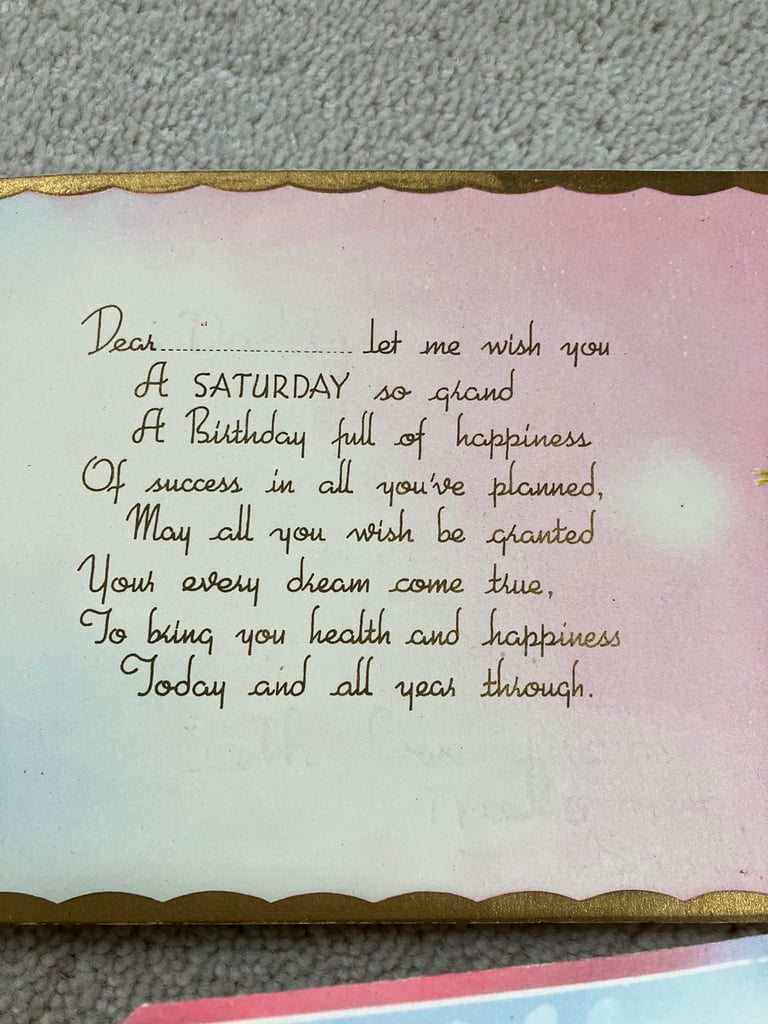 Dear.......................... let me wish you
A SATURDAY so grand
A Birthday full of happiness
Of success in all you've planned,
May all you wish be granted
Your every dream come true,
To bring you health and happiness
Today and all year through.